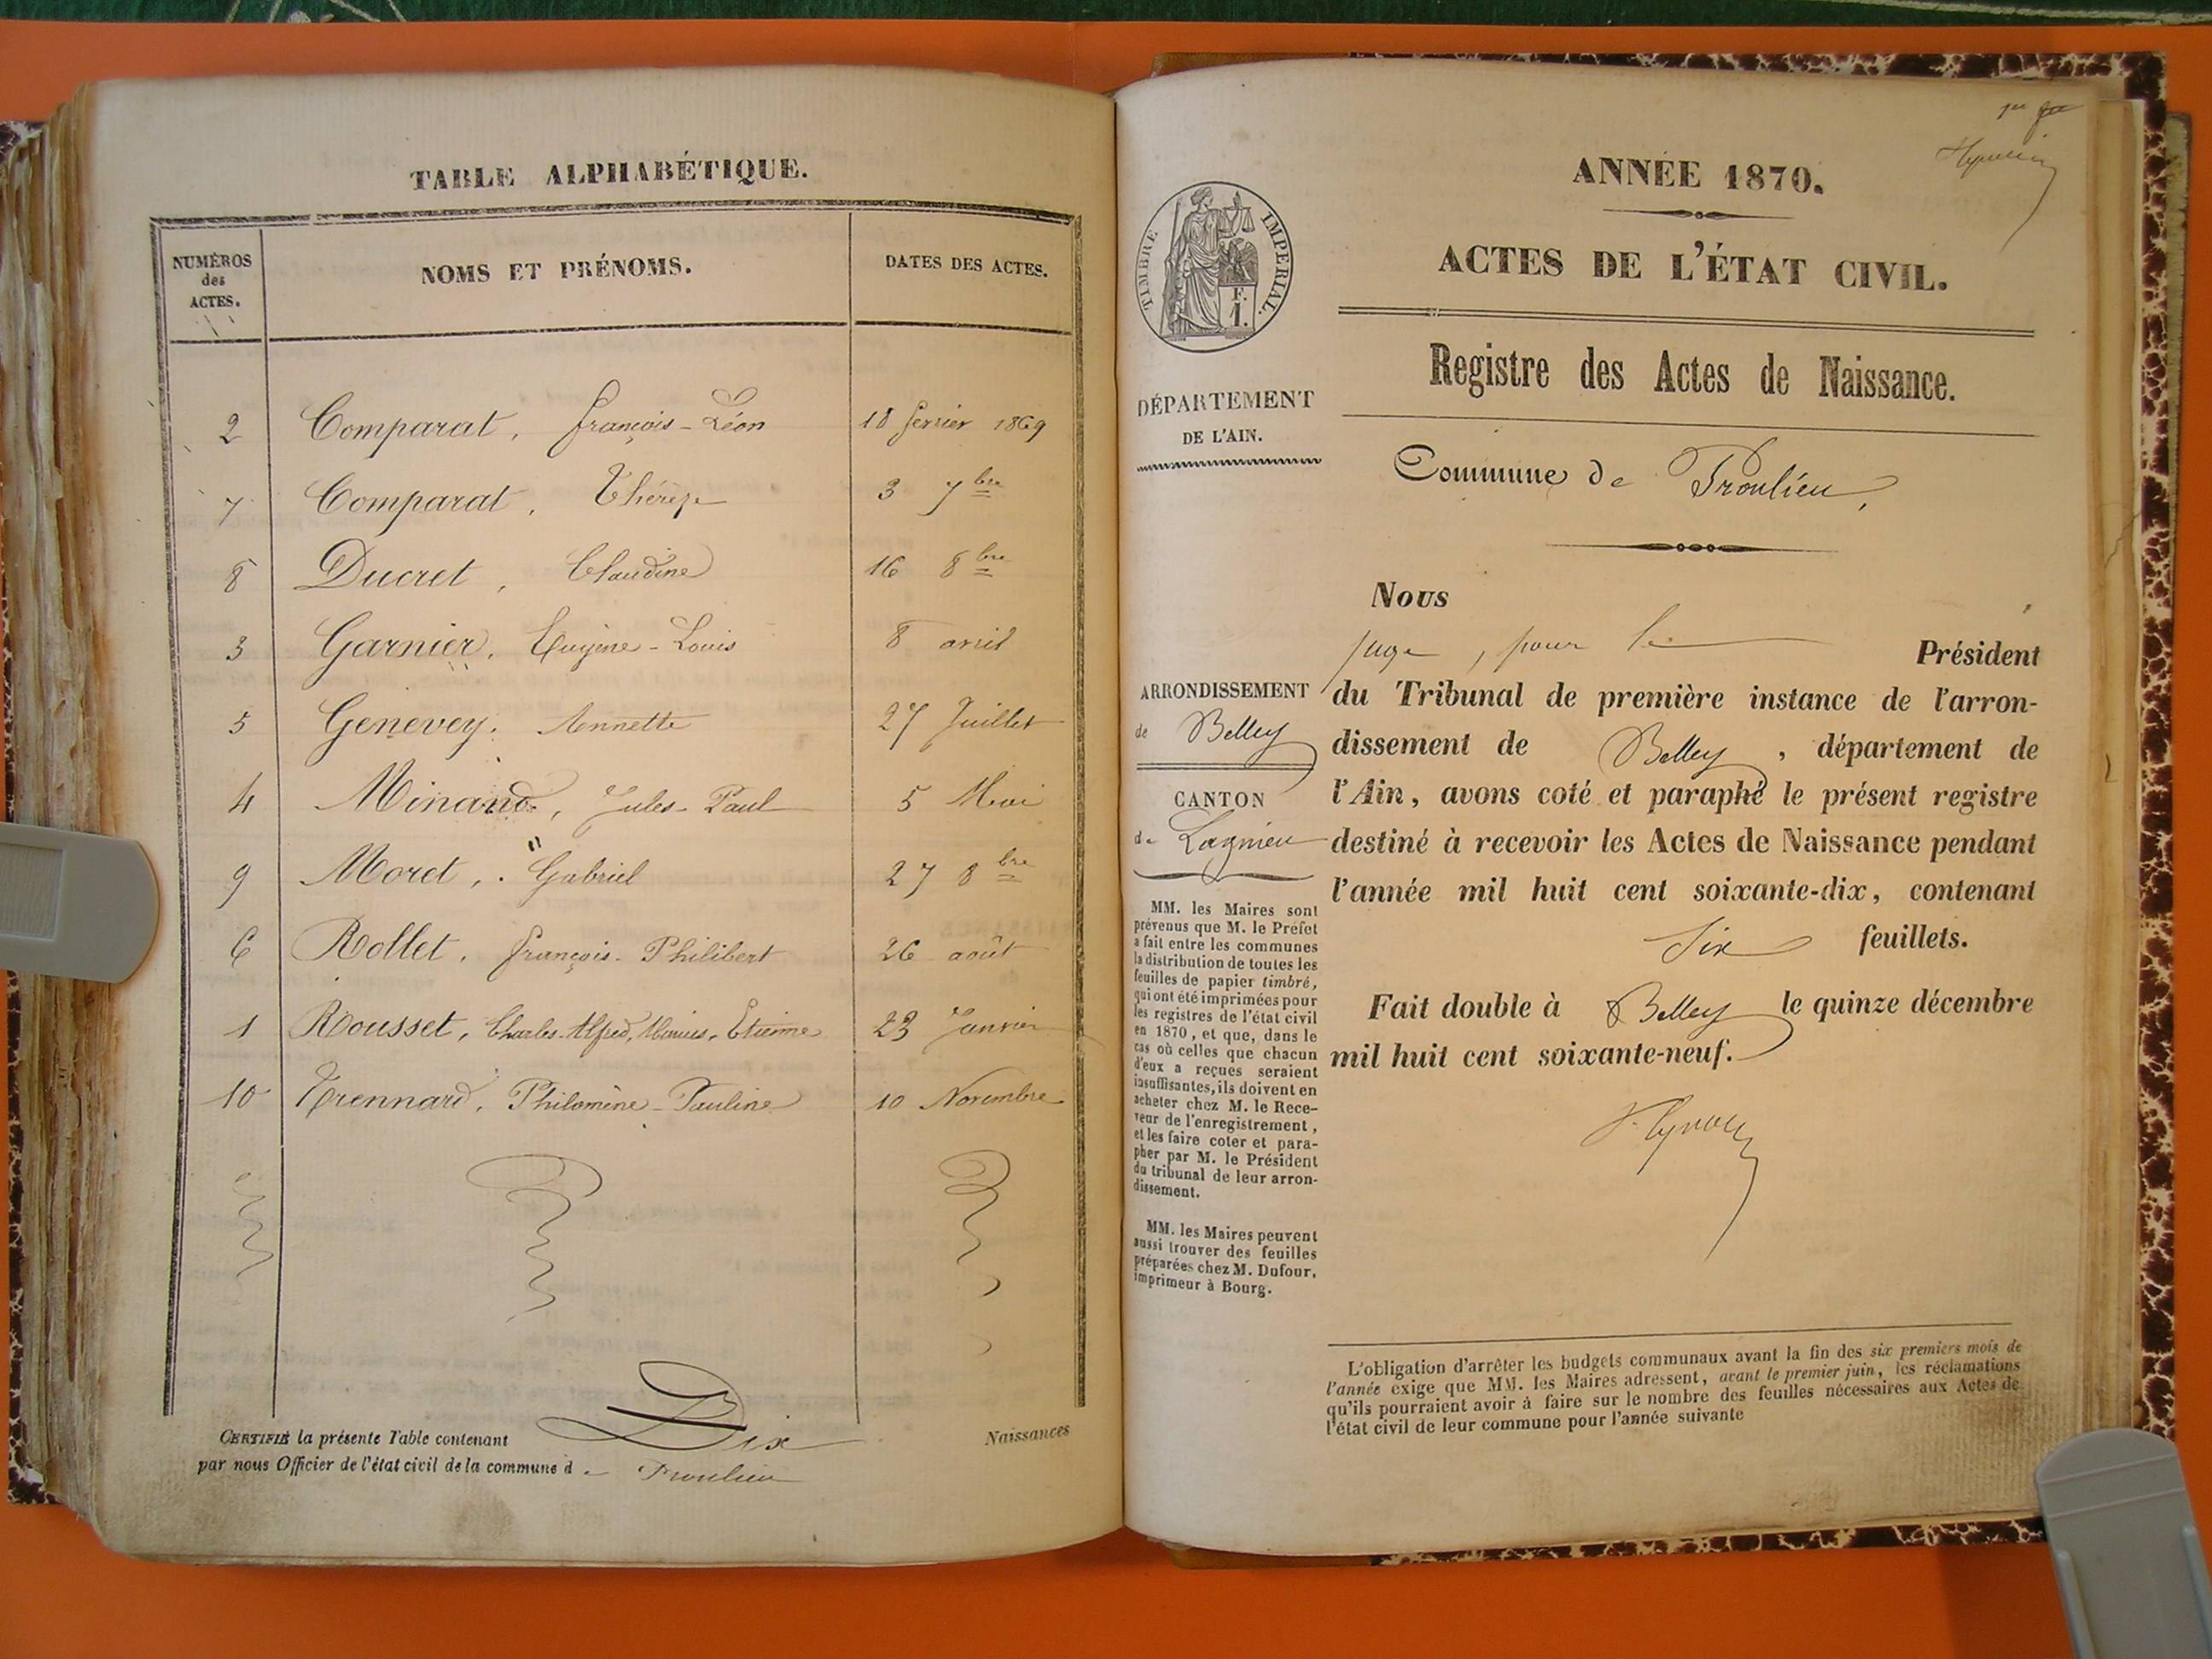 TABLE ALPHABÉTIQUE.
NUMÉROS
des
ACTES.
NOMS ET PRÉNOMS.
DATES DES ACTES.
2 Comparat, François-Léon 18 février 1869
7 Comparat, Thérèse 3 7bre
8 Ducret, Claudine 16 8bre
3 Garnier, Eugène-Louis 8 avril
5 Genevey, Annette 27 Juillet
4 Minand, Jules-Paul 5 Mai
9 Moret, Gabriel 27 8bre
6 Rollet, François-Philibert 26 août
1 Rousset, Charles-Alfred, Marius, Etienne 23 Janvier
10 Trennard, Philomène-Pauline 10 Novembre
CERTIFIÉ la présente Table contenant Dix Naissances
par nous Officier de l'état civil de la commune de Proulieu
ANNÉE 1870.
ACTES DE L'ÉTAT CIVIL.
TIMBRE IMPERIAL.
F.
1.
Registre des Actes de Naissance.
DÉPARTEMENT
DE L'AIN.
Commune de Proulieu,
ARRONDISSEMENT
de Belley
CANTON
de Lagnieu
MM. les Maires sont
prévenus que M. le Préfet
a fait entre les communes
la distribution de toutes les
feuilles de papier timbré,
qui ont été imprimées pour
les registres de l'état civil
en 1870, et que, dans le
cas où celles que chacun
d'eux a reçues seraient
insuffisantes, ils doivent en
acheter chez M. le Rece-
veur de l'enregistrement,
et les faire coter et para-
pher par M. le Président
du tribunal de leur arron-
dissement.
MM. les Maires peuvent
aussi trouver des feuilles
préparées chez M. Dufour,
imprimeur à Bourg.
Nous
juge, pour le Président
du Tribunal de première instance de l'arron-
dissement de Belley, département de
l'Ain, avons coté et paraphé le présent registre
destiné à recevoir les Actes de Naissance pendant
l'année mil huit cent soixante-dix, contenant
Six feuillets.
Fait double à Belley le quinze décembre
mil huit cent soixante-neuf.
L'obligation d'arrêter les budgets communaux avant la fin des six premiers mois de
l'année exige que MM. les Maires adressent, avant le premier juin, les réclamations
qu'ils pourraient avoir à faire sur le nombre des feuilles nécessaires aux Actes de
l'état civil de leur commune pour l'année suivante